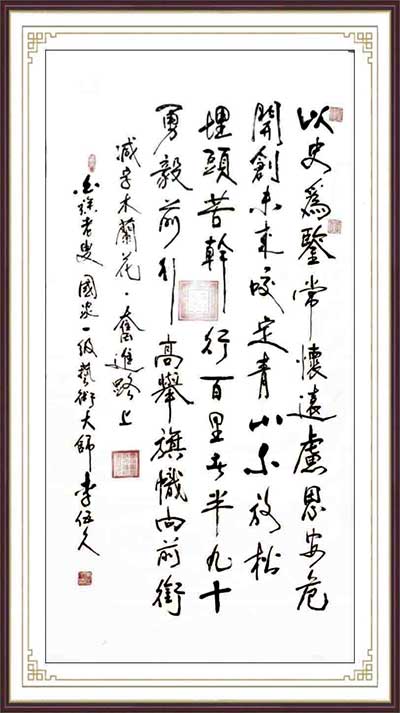 以史為鑒常懷遠慮思安危
開創未来咬定青山不放松
埋頭苦幹行百里者半九十
勇毅前行高舉旗幟向前衝
减字木蘭花·奮進路上
白族老叟國家一級藝術大師李伍久